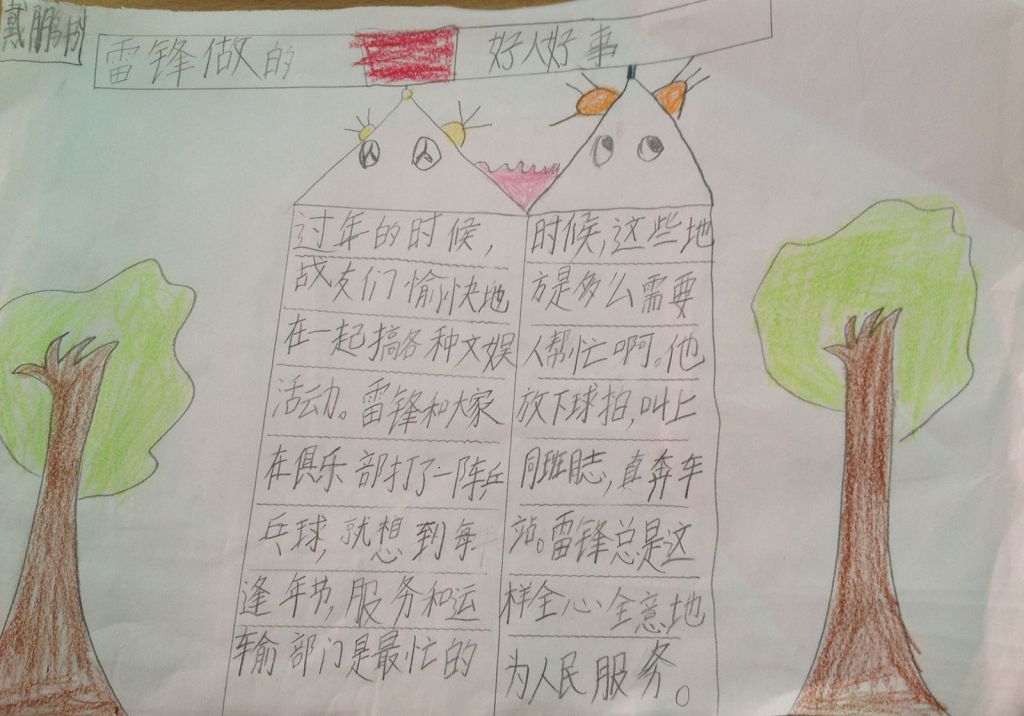 戴鹏
雷锋做的 好人好事
过年的时候,
战友们愉快地
在一起搞各种文娱
活动。雷锋和大家
在俱乐部打了一阵乒
乓球,就想到每
逢年节,服务和运
输部门是最忙的
时候,这些地
方是多么需要
人帮忙啊。他
放下球拍,叫上
同班同志,真奔车
站。雷锋总是这
样全心全意地
为人民服务。